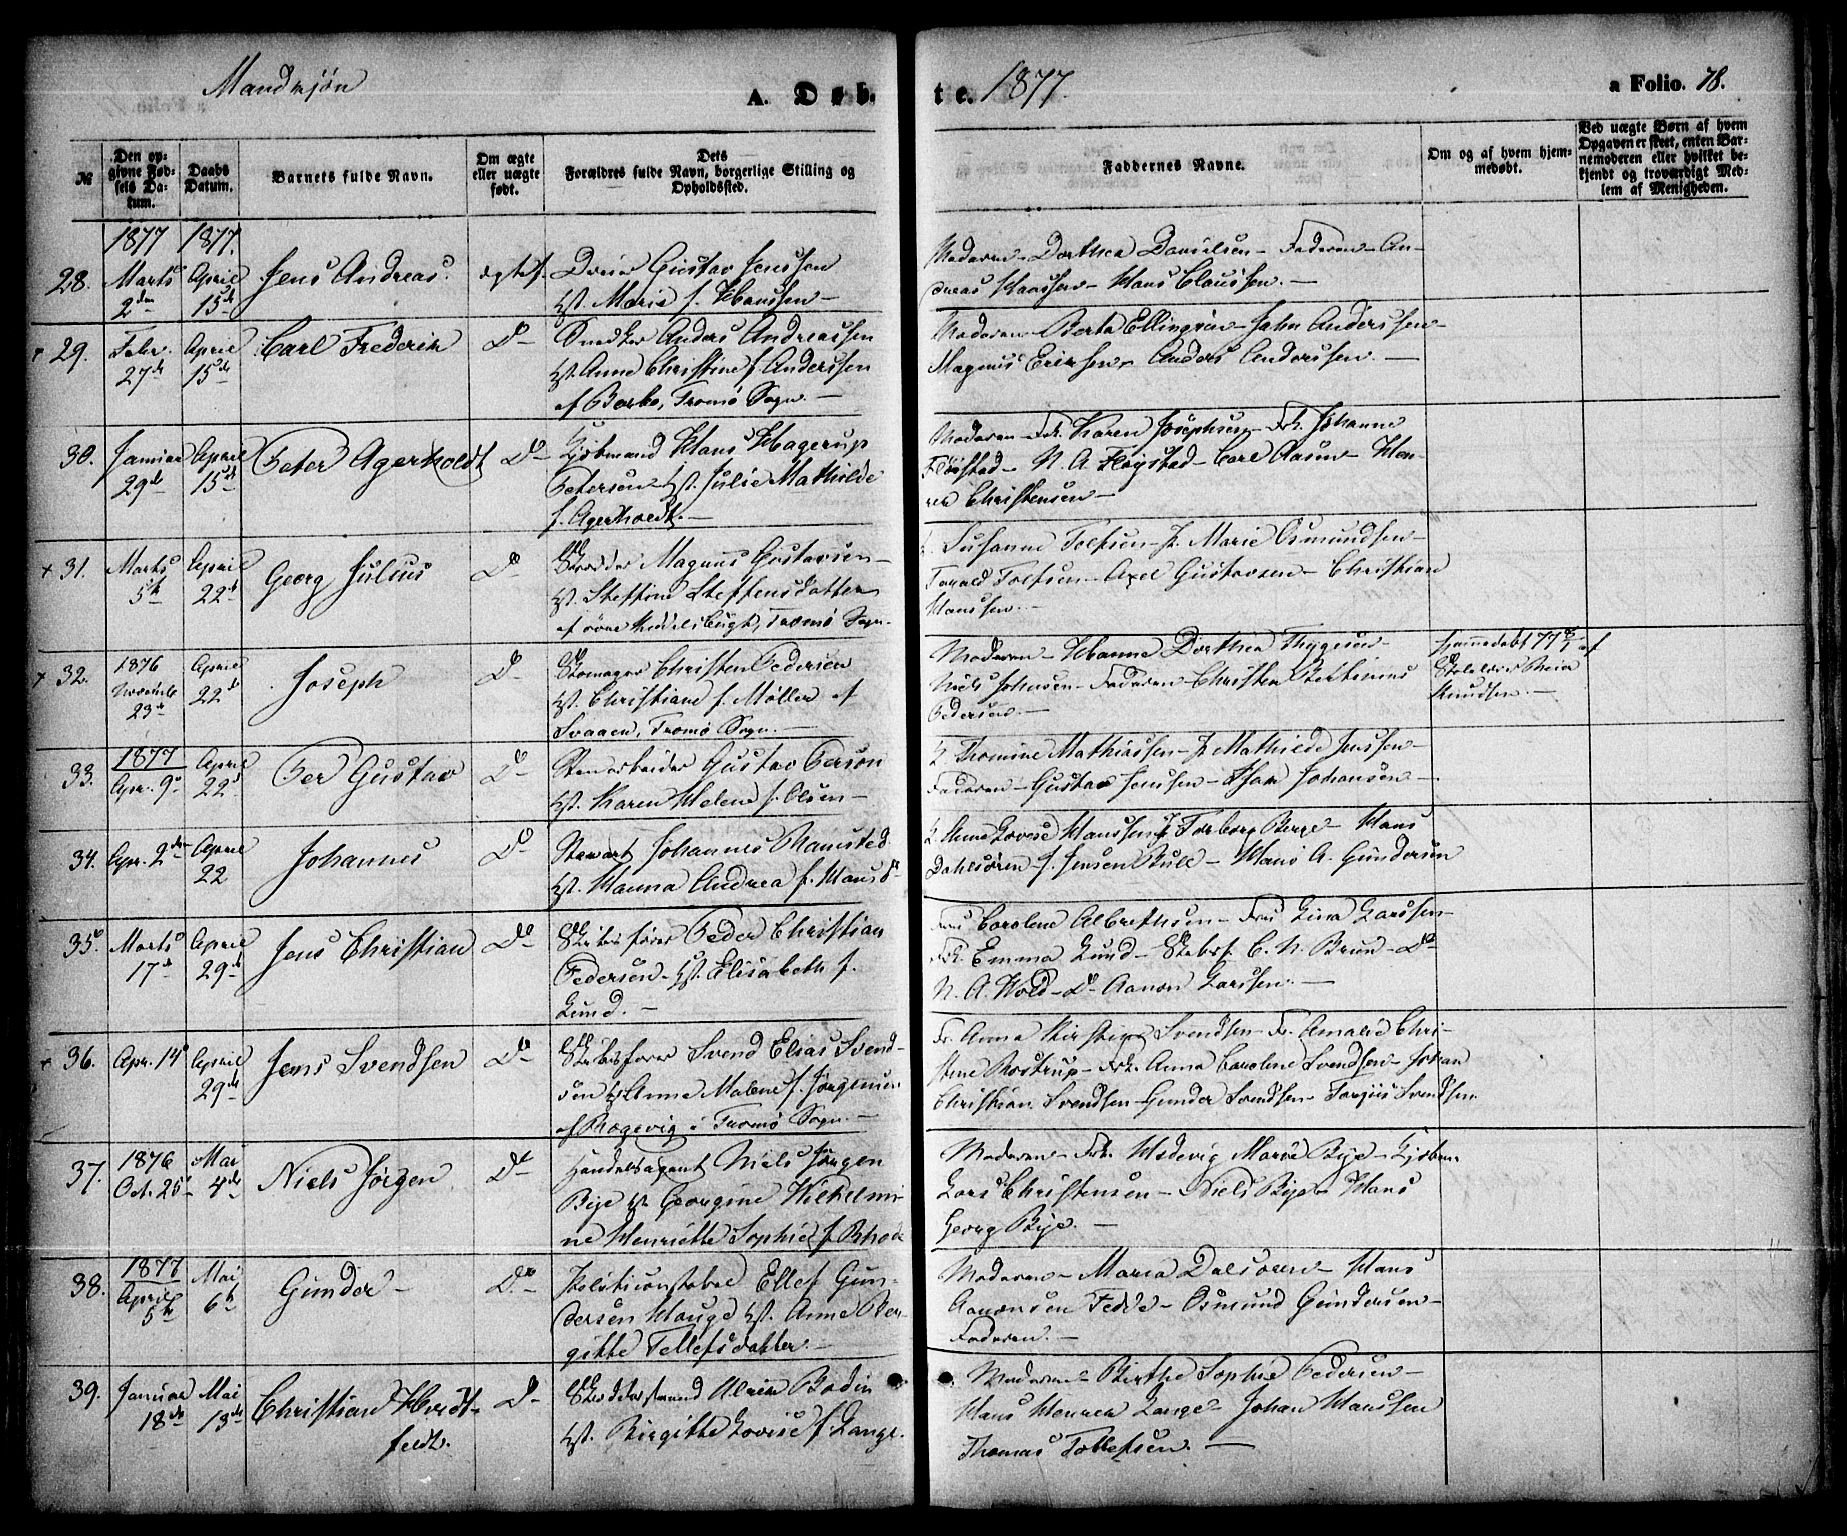 Mandkjøn A. Døb-
te. 1877. a Folio. 78.
№
Den op-
givne Fød-
sels Da-
tum.
Daabs
Datum.
Barnets fulde Navn.
Om ægte
eller uægte
født.
Dets
Forældres fulde Navn, borgerlige Stilling og
Opholdssted.
Faddernes Navne.
Om og af hvem hjem-
medøbt.
Ved uægte Børn af hvem
Opgaven er skeet, enten Bar-
nemoderen eller hvilket be-
kjendt og troværdigt Med-
lem af Menigheden.
1877 1877.
28. Marts 2den April 15de Jens Andreas. ægtef.
Gustav Jenssen
Hst. Marie f. Hanssen
Moderen Dorthea Danielsen Faderen An-
dreas Hanssen Hans Claussen.
29. Febr. 27de April 15de Carl Frederik Do
Snedker Anders Andreassen
Hst. Anne Christine f. Anderssen
af Barbo, Tromø Sogn.
Moderen Berta Ellingsen John Anderssen
Magnus Eriksen Anders Anderssen.
30. Januar 29de April 15de Peter Agerholdt Do
Kjøbmand Hans Hagerup
Petersen Hst. Julie Mathilde
f. Agerholdt.
Moderen Frk. Karen Josephsen Frk. Johanne
Fløistad N. A. Fløystad Carl Aasen Hen-
rik Christensen
31. Marts 5te April 22de Georg Julius Do
Skrædder Magnus Gustavsen
Hst. Steffine Steffensdatter
af øvre Kiddelsbugt, Tromø Sogn.
F. Susanne Tolfsen F. Marie Osmundsen
Torald Tolfsen Axel Gustavsen Christian
Hanssen.
32. 1876 Novembr 23de April 22de Joseph Do
Skomager Christen Pedersen
Hst. Christiane f. Møller af
Svaaen, Tromø Sogn.
Moderen Hanne Dorthea Thygesen
Niels Johnsen Faderen Christen Bertinius
Pedersen.
Hjemmedøbt af
Knudsen.
33. 1877 Apr. 9de April 22de Per Gustav Do
Stenarbeider Gustav Person
Hst. Karen Helene f. Olsen
F. Thomine Mathiassen F. Mathilde Jenssen
Faderen Gustav Jenssen Johansen
34. Apr. 2den April 22 Johannes Do
Stewart Johannes Ramsted
Hst. Hanna Andrea f. Hans
F. Anne Lovise Hanssen F. Torborg Berge Hans
Dahlsøren J. Jensen Bull Hans A. Gundersen
35. Marts 17de April 29de Jens Christian Do
Skibsfører Peder Christian
Pedersen Hst. Elisabeth f.
Lund.
Fru Caroline Albrethsen Fru Lina Larssen
Frk. Emma Lund Skibsf. C. N. Bruun Do
N. A. Wold Do Aanon Larssen.
36. Apr. 14de April 29de Jens Svendsen Do
Skibsfører Svend Elias Svend-
sen Hst. Anna Malene f. Jørgensen
af Rægevig i Tromø Sogn.
Fr. Anna Kirstine Svendsen Fr. Amalie Chri-
stine Rostrup Frk. Anna Caroline Svendsen Johan
Christian Svendsen Gunder Svendsen Torjus Svendsen
37. 1876 Oct. 25de Mai 4de Niels Jørgen Do
Handelsagent Niels Jørgen
Bye Hst. Georgine Wilhelmi-
ne Henriette Sophie f. Rhode
Moderen Frk. Hedevig Marie Bye Kjøbm.
Lars Christensen Niels Bye Hans
Georg Bye.
38. 1877 April 5te Mai 6te Gunder Do
Politiconstabel Ellef Gun-
dersen Hauge Hst. Anne Ber-
gitte Tellefsdatter.
Moderen Maria Dalsøren Hans
Aanonsen Fedde Osmund Gundersen
Faderen.
39. Januar 18de Mai 13de Christian Hvidt-
feldt. Do
Ulrik Bodin
Hst. Birgitte Lovise f. Lange.
Moderen Birthe Sophie Pedersen
Hans Henrik Lange Johan Hanssen
Thomas Tollefsen.